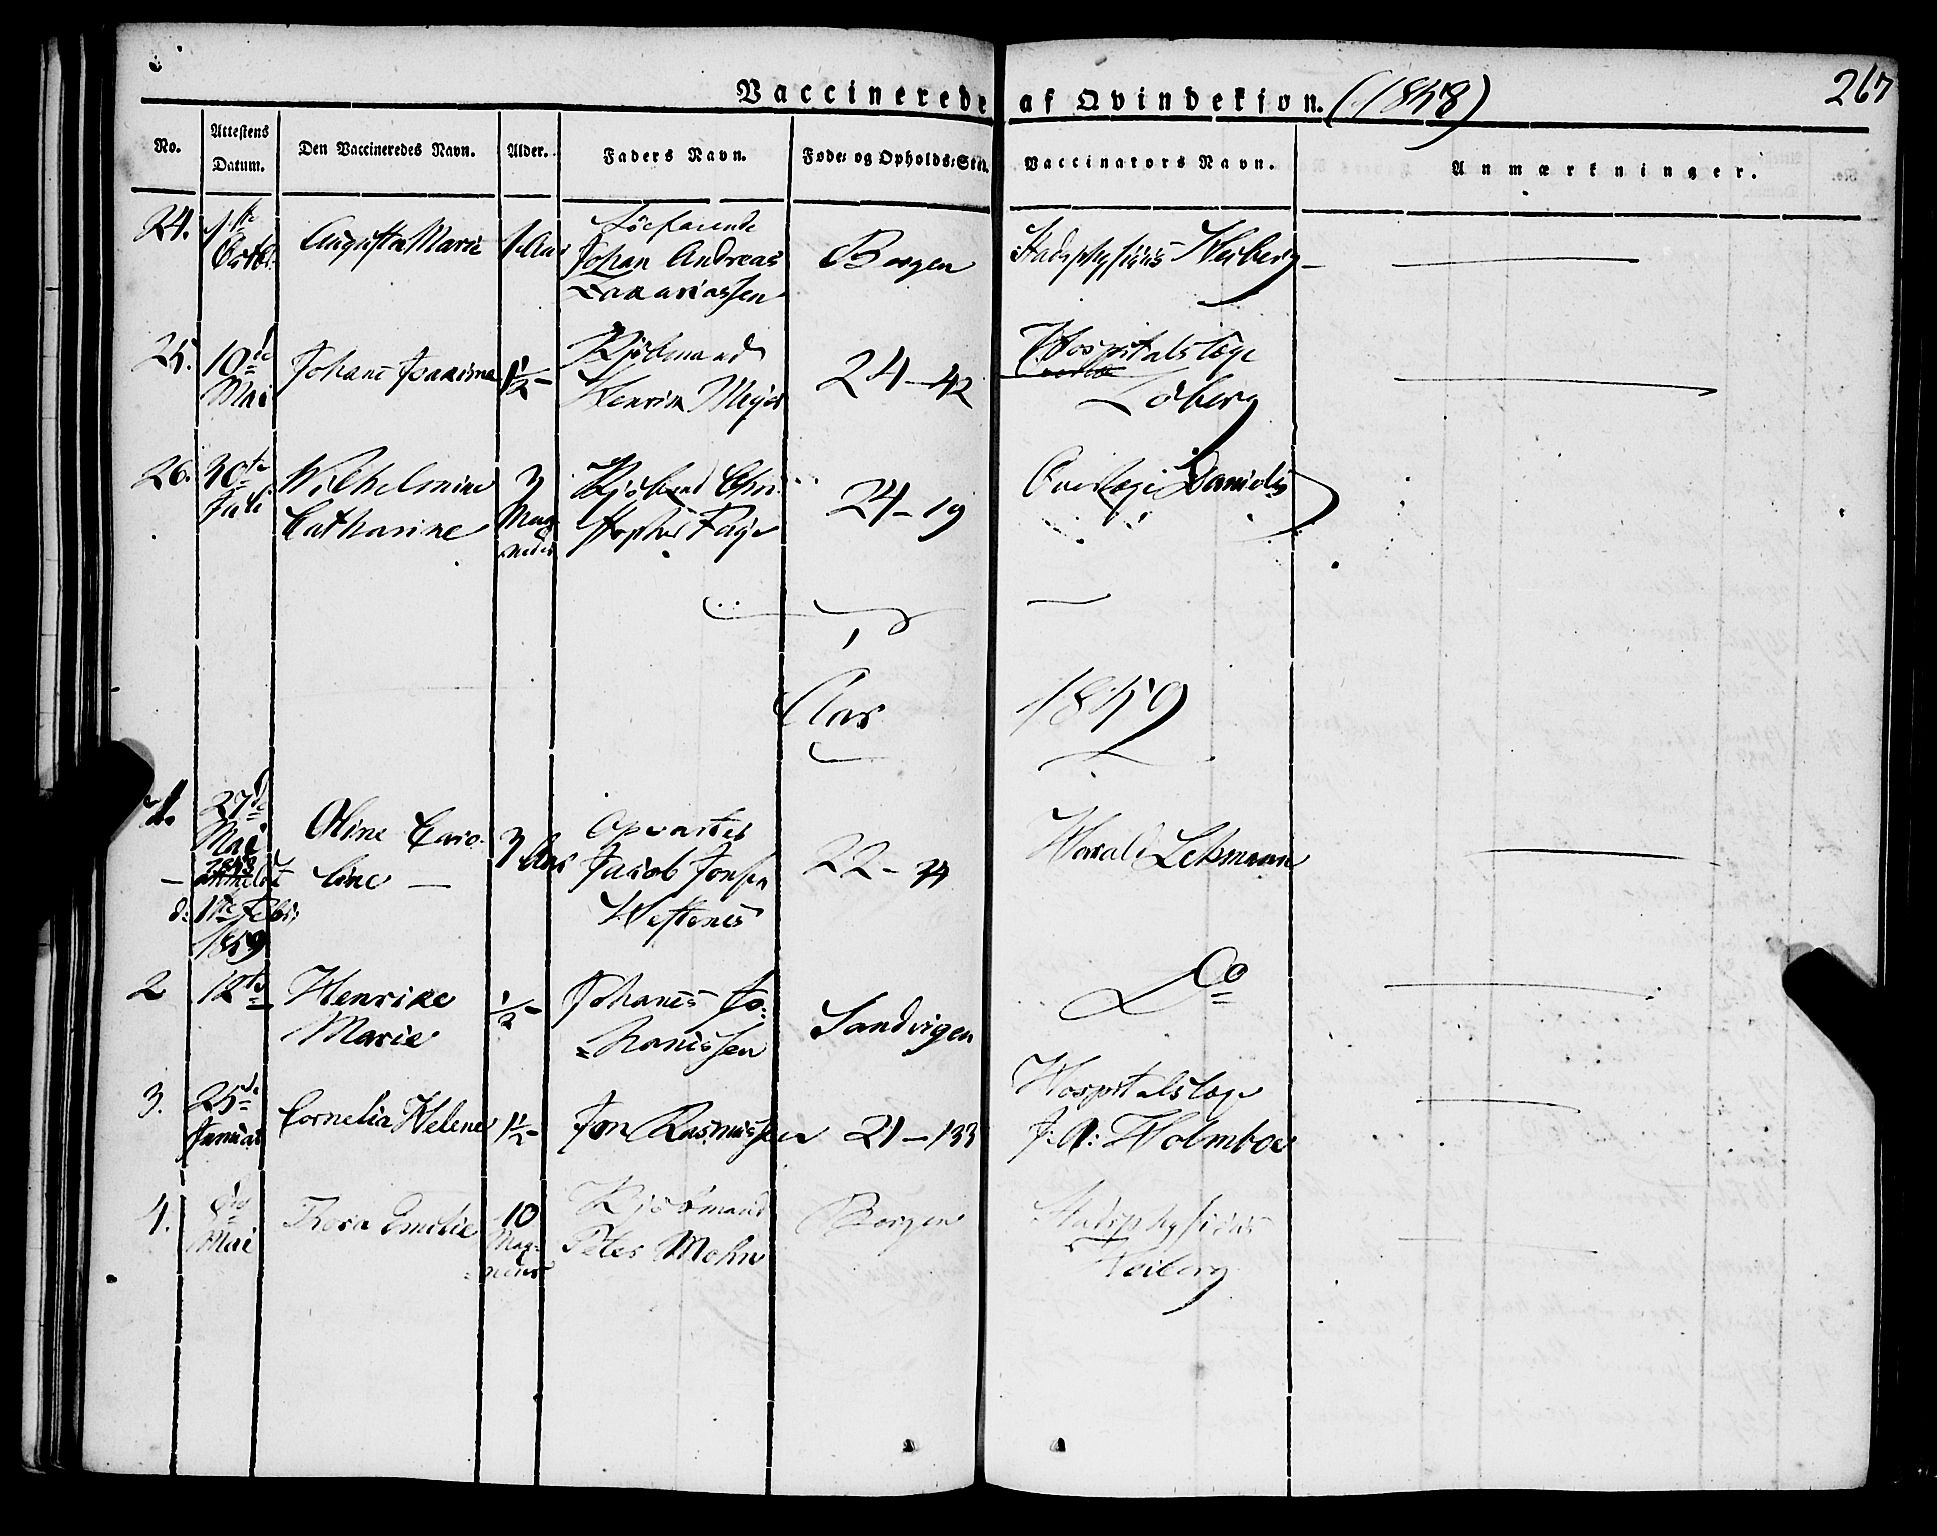 Vaccinerede af Qvindekjøn. (1858)
267
No.
Attestens Datum.
Den Vaccineredes Navn.
Alder.
Faders Navn.
Føde- og Opholds-Sted.
Vaccinators Navn.
Anmærkninger.
24. 1ste Octbr. Augusta Marie 1 Aar Söefarende
Johan Andreas
Zakariassen
Bergen Stadsphysicus Heiberg
25. 10de Mai
Johane 1½ Kjöbmand
Henrik Meyer
24-42 Hospitalslæge
Löberg
26. 30te
Juli
Wilhelmine
Catharine
3
Maaneder
Kjöbmd Christopher
24-19 Overlæge Daniels
Aar 1859
1. 27de
Mai
1853
anmeldt
d: 1ste Febr:
1859
Oline Caroline
3 Aar
Opvarter
Jacob Jonsen
22- Harald Lehmann
2 12te Henrike
Marie
½ Johanes Johanessen
Sandvigen Do
3. 25de
Januar
Cornelia Helene 1½ Jon Rasmussen 21-133 Hospitalslæge
J: A: Holmboe
4. Mai
Thora Emilie 10
Maaneder
Kjöbmand
Peter Mohn
Bergen Stadsphysicus
Heiberg